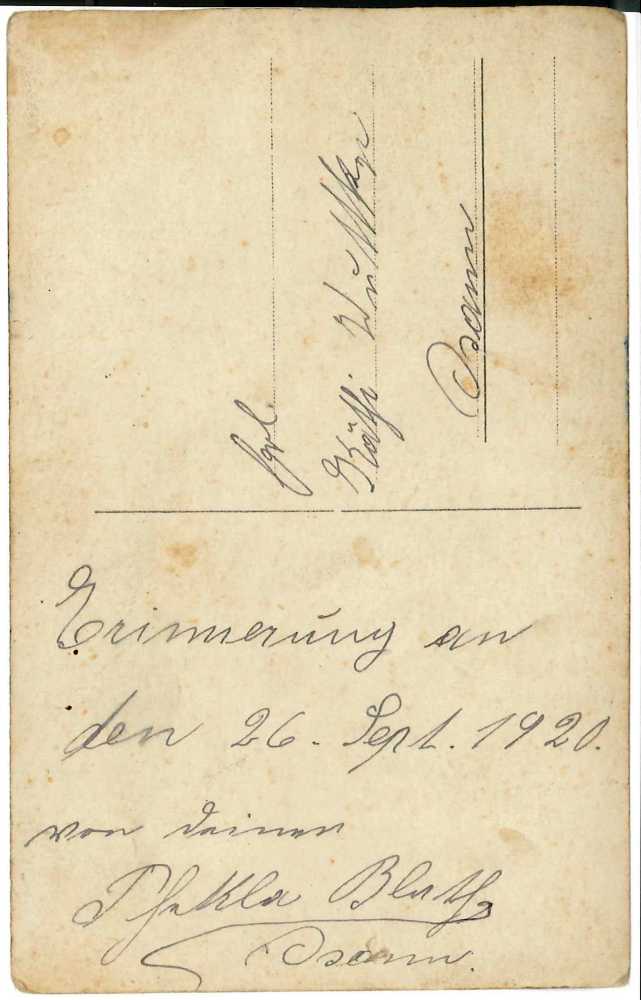 Frl.
Käthi
Osann
Erinnerung an
den 26. Sept. 1920.
von deiner
Thekla Blath
Osann.